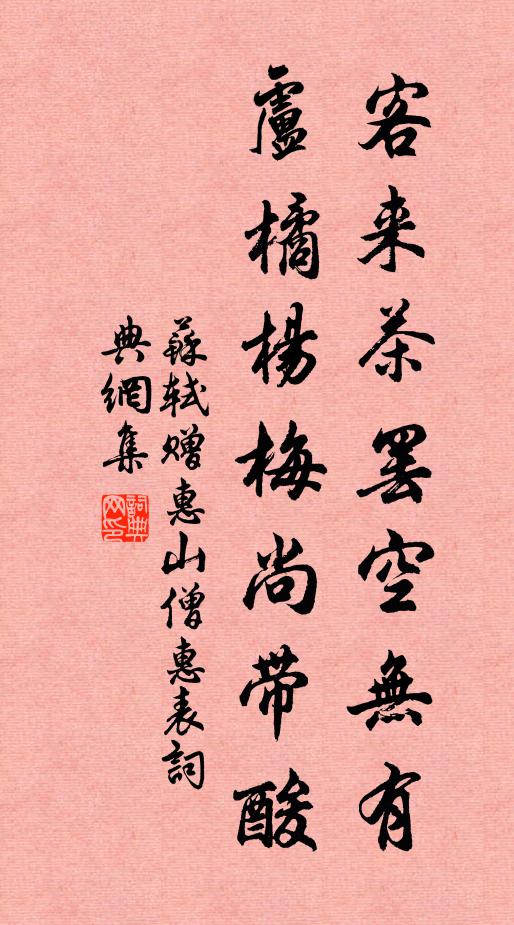 客来茶罢空無有
盧橘楊梅尚帶酸
蘇軾贈惠山僧惠表詞
典網集
詞典
网印